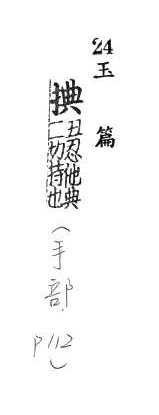 24
玉篇
㨏
丑忍他典
二切持也
(手部.
P112)